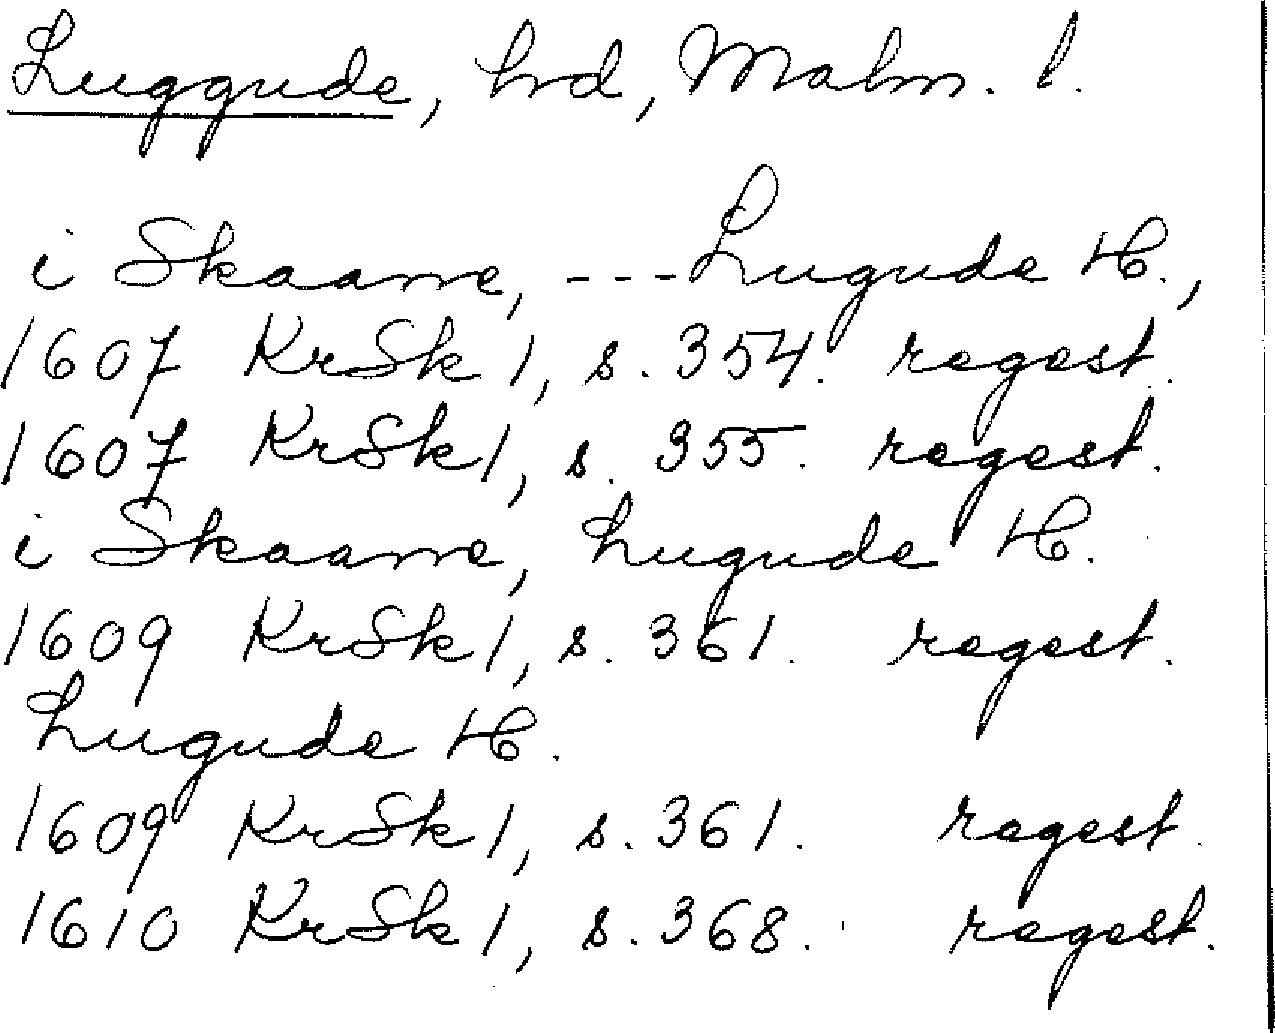 Luggude, hrd, Malm. l.
i Skaane, ---Lugude H.,
1607 KrSk 1, s. 354. regest.
1607 KrSk 1, s. 355. regest.
i Skaane, Lugude H.
1609 KrSk 1, s. 361. regest.
Lugude H.
1609 KrSk 1, s. 361. regest.
1610 KrSk 1, s. 368. regest.